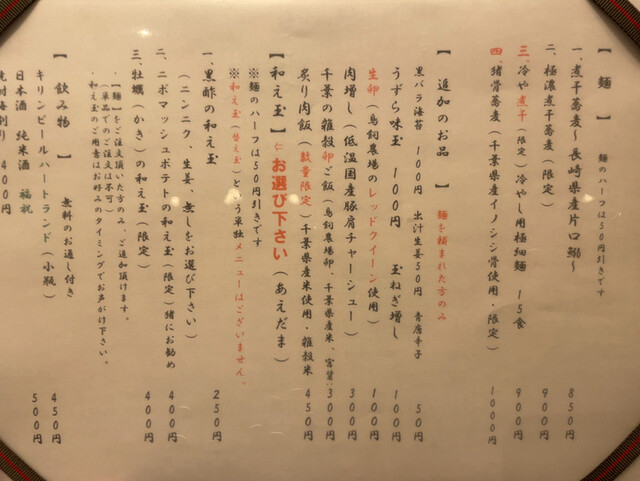 【 麺 】 麺のハーフは50円引きです
一、煮干蕎麦～長崎県産片口鰯～ 850円
二、極濃煮干蕎麦（限定） 900円
三、冷や煮干（限定）冷やし用極細麺 15食 900円
四、猪骨蕎麦（千葉県産イノシシ骨使用・限定） 1000円
【 追加のお品 】 麺を頼まれた方のみ
黒バラ海苔 100円 出汁生姜50円 青唐辛子 50円
うずら味玉 100円 玉ねぎ増し 100円
生卵（鳥飼農場のレッドクイーン使用） 100円
肉増し（低温国産豚肩チャーシュー） 300円
千葉の雑穀卵ご飯（鳥飼農場卵、千葉県産米、宮醤 300円
炙り肉飯（数量限定）千葉県産米使用・雑穀米 450円
【和え玉】⇐お選び下さい（あえだま）
※麺のハーフは50円引きです
※和え玉（替え玉）という単独メニューはございません。
一、黒酢の和え玉 250円
（ニンニク、生姜、無しをお選び下さい）
二、ニボマッシュポテトの和え玉（限定）猪にお勧め 400円
三、牡蠣（かき）の和え玉（限定） 400円
・【麺】をご注文頂いた方のみ、ご追加頂けます。
（単品でのご注文は不可）
・和え玉のご用意はお好みのタイミングでお声がけ下さい。
【 飲み物 】 無料のお通し付き
キリンビールハートランド（小瓶） 450円
日本酒 純米酒 福祝 500円
400円